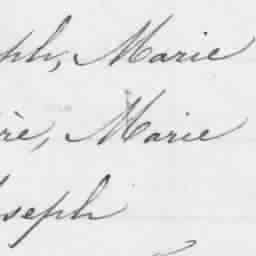 ph, Marie
ère, Marie
Joseph